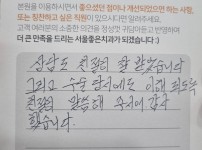 본원을 이용하시면서 좋으셨던 점이나 개선되었으면 하는 사항,
또는 칭찬하고 싶은 직원이 있으시다면 알려주세요.
고객 여러분의 소중한 의견을 정성껏 귀담아듣고 반영하여
더 큰 만족을 드리는 서울좋은치과가 되겠습니다 :)
상담도 친절히 잘 받았습니다
그리고 수술 당시에도 이해 되도록
친절히 말씀해 주셔서 감사
했습니다.